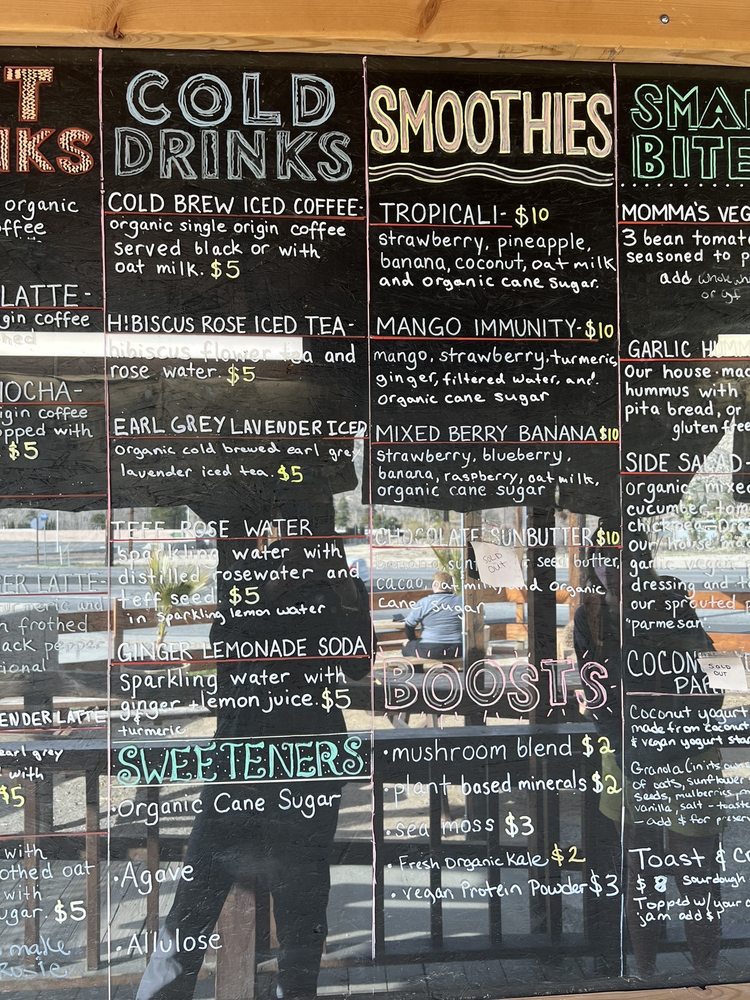 T
NKS
organic
ffee
LATTE-
gin coffee
MOCHA-
igin coffee
opped with
$5
ER LATTE-
meric and
h frothed
lack pepper
ional
ENDER LATTE
earl grey
with
$5
with
othed oat
with
ugar. $5
make
COLD
DRINKS
COLD BREW ICED COFFEE-
organic single origin coffee
served black or with
oat milk. $5
H!BISCUS ROSE ICED TEA-
hibiscus flower tea and
rose water. $5
EARL GREY LAVENDER ICED
organic cold brewed earl grey
lavender iced tea. $5
TEFF ROSE WATER
sparkling water with
distilled rosewater and
teff seed. $5
in sparkling lemon water
GINGER LEMONADE SODA
sparkling water with
ginger + lemon juice. $5
turmeric
SWEETENERS
·Organic Cane Sugar
·Agave
·Allulose
SMOOTHIES
TROPICALI- $10
strawberry, pineapple,
banana, coconut, oat milk
and organic cane sugar.
MANGO IMMUNITY-$10
mango, strawberry, turmeric,
ginger, filtered water, and
organic cane sugar
MIXED BERRY BANANA $10
strawberry, blueberry,
banana, raspberry, oat milk,
organic cane sugar
CHOCOLATE SUNBUTTER $10
SOLD
OUT
banana, sun seed butter,
cacao, oat milk, and organic
cane sugar
BOOSTS
·mushroom blend $2
·plant based minerals $2
·sea moss $3
·Fresh Organic Kale $2
·vegan Protein Powder $3
SMA
BITE
MOMMA'S VEG
3 bean tomat
seasoned to p
add
or
GARLIC HUMM
Our house-mad
hummus with
pita bread, or
gluten free
SIDE SALAD-
organic mixed
cucumber, tom
chickpea
our house ma
garlic vegan
dressing and t
our sprouted
"parmesan".
COCON
PAR
SOLD
OUT
Coconut yogurt
made from coconut
& vegan yogurt sta
Granola (in its ow
of oats, sunflower
seeds, mulberries,
vanilla, salt - toast
- add $ for preser
Toast & C
$8 sourdough
Topped w/your
jam add $1